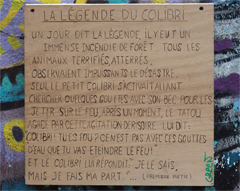 LA LÉGENDE DU COLIBRI
UN JOUR, DIT LA LÉGENDE, IL Y EUT UN
IMMENSE INCENDIE DE FORÊT. TOUS LES
ANIMAUX TERRIFIÉS, ATTERRÉS,
OBSERVAIENT IMPUISSANTS LE DÉSASTRE.
SEUL LE PETIT COLIBRI S'ACTIVAIT, ALLANT
CHERCHER QUELQUES GOUTTES AVEC SON BEC POUR LES
JETER SUR LE FEU. APRÈS UN MOMENT, LE TATOU,
AGACÉ PAR CETTE AGITATION DÉRISOIRE, LUI DIT:
COLIBRI! TU N'ES PAS FOU? CE N'EST PAS AVEC CES GOUTTES
D'EAU QUE TU VAS ÉTEINDRE LE FEU!
ET LE COLIBRI LUI RÉPONDIT: "JE LE SAIS,
MAIS JE FAIS MA PART."...